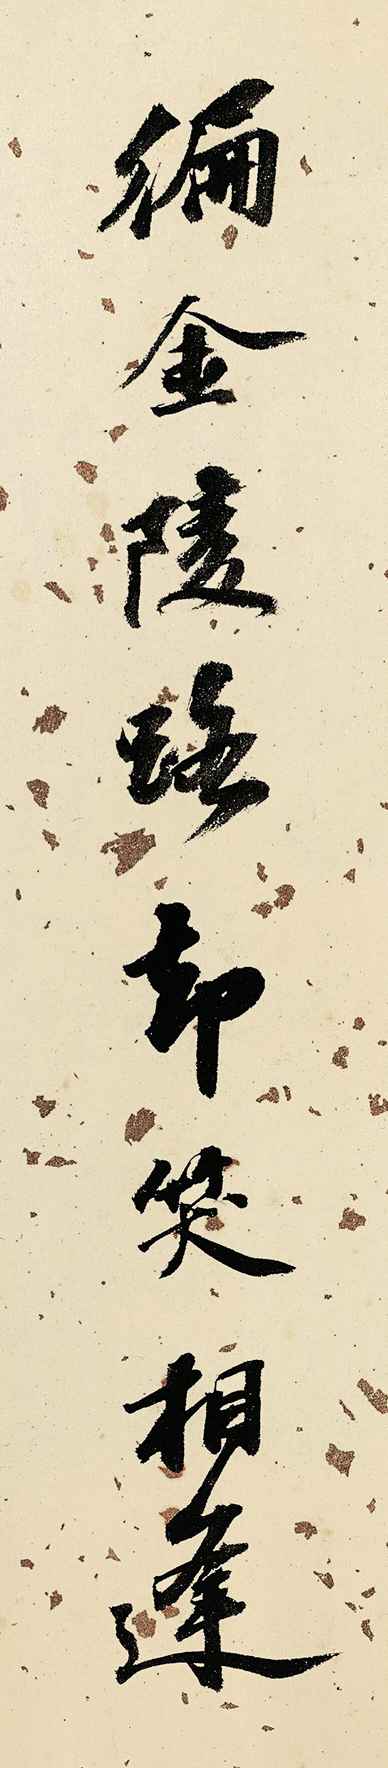 徧金陵路却笑相逢